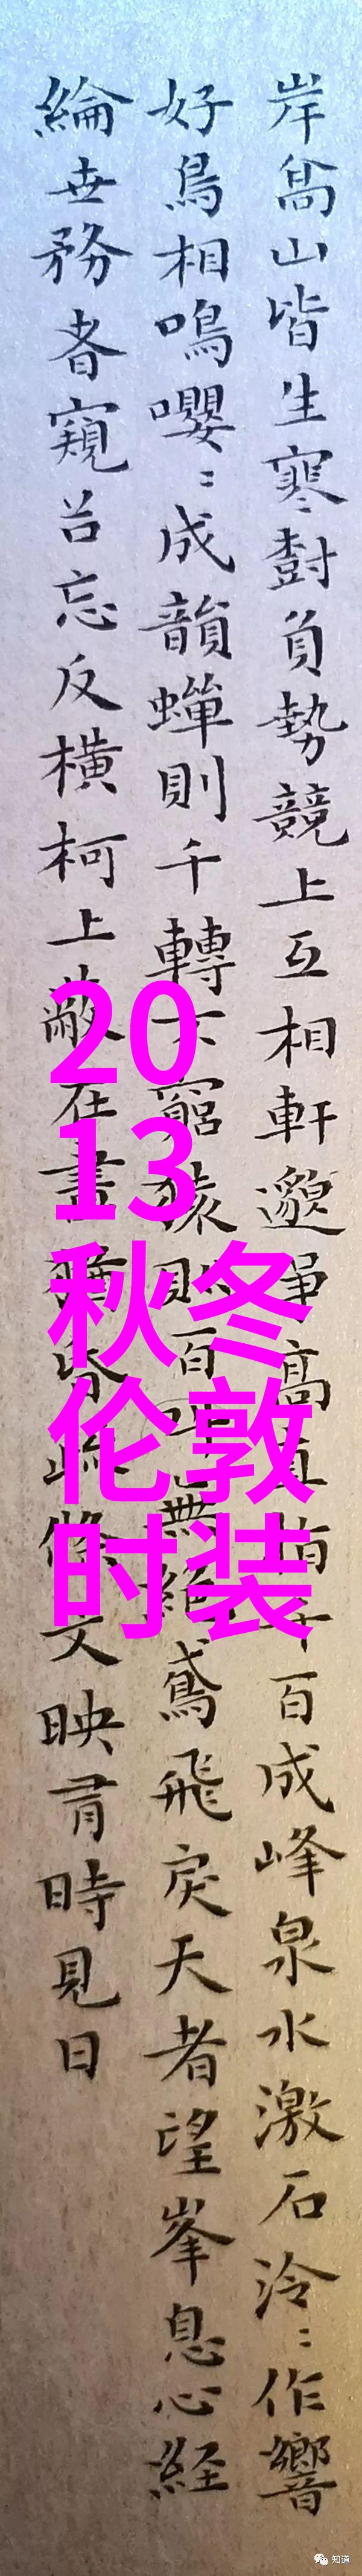 岸高山皆生寒樹負勢競上互相軒邈爭高直指千百成峰泉水激石泠〻作響
好鳥相鳴嚶〻成韻蟬則千轉不窮猿則百叫無絕鳶飛戾天者望峯息心経
綸世務者窺谷忘反橫柯上蔽在晝猶昏疏條交映有時見日
20
13
秋冬
伦敦
时装
知道